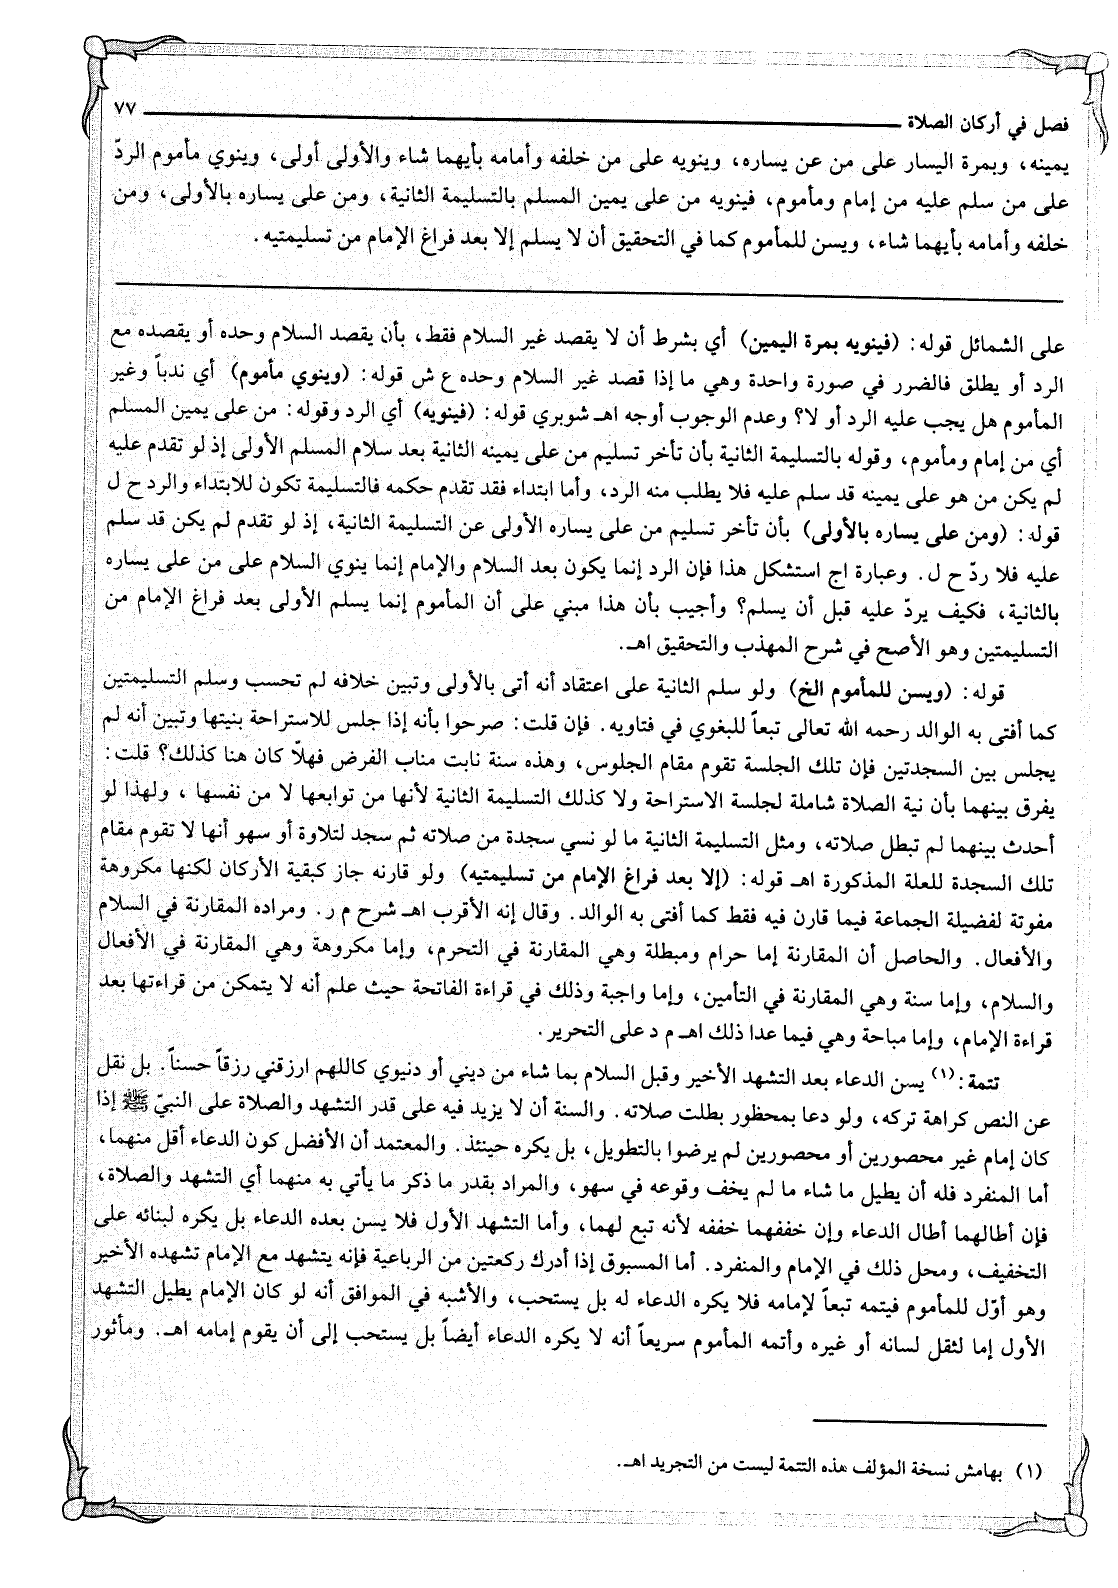 فصل في أركان الصلاة ٧٧
يمينه، وبمرة اليسار على من عن يساره، وينويه على من خلفه وأمامه بأيهما شاء والأولى أولى، وينوي مأموم الردّ
على من سلم عليه من إمام ومأموم، فينويه من على يمين المسلم بالتسليمة الثانية، ومن على يساره بالأولى، ومن
خلفه وأمامه بأيهما شاء، ويسن للمأموم كما في التحقيق أن لا يسلم إلا بعد فراغ الإمام من تسليمتيه.
على الشمائل قوله: (فينويه بمرة اليمين) أي بشرط أن لا يقصد غير السلام فقط، بأن يقصد السلام وحده أو يقصده مع
الرد أو يطلق فالضرر في صورة واحدة وهي ما إذا قصد غير السلام وحده ع ش قوله: (وينوي مأموم) أي ندباً وغير
المأموم هل يجب عليه الرد أو لا؟ وعدم الوجوب أوجه اهـ شوبري قوله: (فينويه) أي الرد وقوله: من على يمين المسلم
أي من إمام ومأموم، وقوله بالتسليمة الثانية بأن تأخر تسليم من على يمينه الثانية بعد سلام المسلم الأولى إذ لو تقدم عليه
لم يكن من هو على يمينه قد سلم عليه فلا يطلب منه الرد، وأما ابتداء فقد تقدم حكمه فالتسليمة تكون للابتداء والرد ح ل
قوله: (ومن على يساره بالأولى) بأن تأخر تسليم من على يساره الأولى عن التسليمة الثانية، إذ لو تقدم لم يكن قد سلم
عليه فلا ردّ ح ل. وعبارة اج استشكل هذا فإن الرد إنما يكون بعد السلام والإمام إنما ينوي السلام على من على يساره
بالثانية، فكيف يردّ عليه قبل أن يسلم؟ وأجيب بأن هذا مبني على أن المأموم إنما يسلم الأولى بعد فراغ الإمام من
التسليمتين وهو الأصح في شرح المهذب والتحقيق اهـ.
قوله: (ويسن للمأموم الخ) ولو سلم الثانية على اعتقاد أنه أتى بالأولى وتبين خلافه لم تحسب وسلم التسليمتين
كما أفتى به الوالد رحمه الله تعالى تبعاً للبغوي في فتاويه. فإن قلت: صرحوا بأنه إذا جلس للاستراحة بنيتها وتبين أنه لم
يجلس بين السجدتين فإن تلك الجلسة تقوم مقام الجلوس، وهذه سنة نابت مناب الفرض فهلاّ كان هنا كذلك؟ قلت:
يفرق بينهما بأن نية الصلاة شاملة لجلسة الاستراحة ولا كذلك التسليمة الثانية لأنها من توابعها لا من نفسها ، ولهذا لو
أحدث بينهما لم تبطل صلاته، ومثل التسليمة الثانية ما لو نسي سجدة من صلاته ثم سجد لتلاوة أو سهو أنها لا تقوم مقام
تلك السجدة للعلة المذكورة اهـ قوله: (إلا بعد فراغ الإمام من تسليمتيه) ولو قارنه جاز كبقية الأركان لكنها مكروهة
مفوتة لفضيلة الجماعة فيما قارن فيه فقط كما أفتى به الوالد. وقال إنه الأقرب اهـ شرح م ر. ومراده المقارنة في السلام
والأفعال. والحاصل أن المقارنة إما حرام ومبطلة وهي المقارنة في التحرم، وإما مكروهة وهي المقارنة في الأفعال
والسلام، وإما سنة وهي المقارنة في التأمين، وإما واجبة وذلك في قراءة الفاتحة حيث علم أنه لا يتمكن من قراءتها بعد
قراءة الإمام، وإما مباحة وهي فيما عدا ذلك اهـ م د على التحرير.
تتمة:(١) يسن الدعاء بعد التشهد الأخير وقبل السلام بما شاء من ديني أو دنيوي كاللهم ارزقني رزقاً حسناً. بل نقل
عن النص كراهة تركه، ولو دعا بمحظور بطلت صلاته. والسنة أن لا يزيد فيه على قدر التشهد والصلاة على النبيّ ﷺ إذا
كان إمام غير محصورين أو محصورين لم يرضوا بالتطويل، بل يكره حينئذ. والمعتمد أن الأفضل كون الدعاء أقل منهما،
أما المنفرد فله أن يطيل ما شاء ما لم يخف وقوعه في سهو، والمراد بقدر ما ذكر ما يأتي به منهما أي التشهد والصلاة،
فإن أطالهما أطال الدعاء وإن خففهما خففه لأنه تبع لهما، وأما التشهد الأول فلا يسن بعده الدعاء بل يكره لبنائه على
التخفيف، ومحل ذلك في الإمام والمنفرد. أما المسبوق إذا أدرك ركعتين من الرباعية فإنه يتشهد مع الإمام تشهده الأخير
وهو أوّل للمأموم فيتمه تبعاً لإمامه فلا يكره الدعاء له بل يستحب، والأشبه في الموافق أنه لو كان الإمام يطيل التشهد
الأول إما لثقل لسانه أو غيره وأتمه المأموم سريعاً أنه لا يكره الدعاء أيضاً بل يستحب إلى أن يقوم إمامه اهـ. ومأثور
(١) بهامش نسخة المؤلف هذه التتمة ليست من التجريد اهـ.